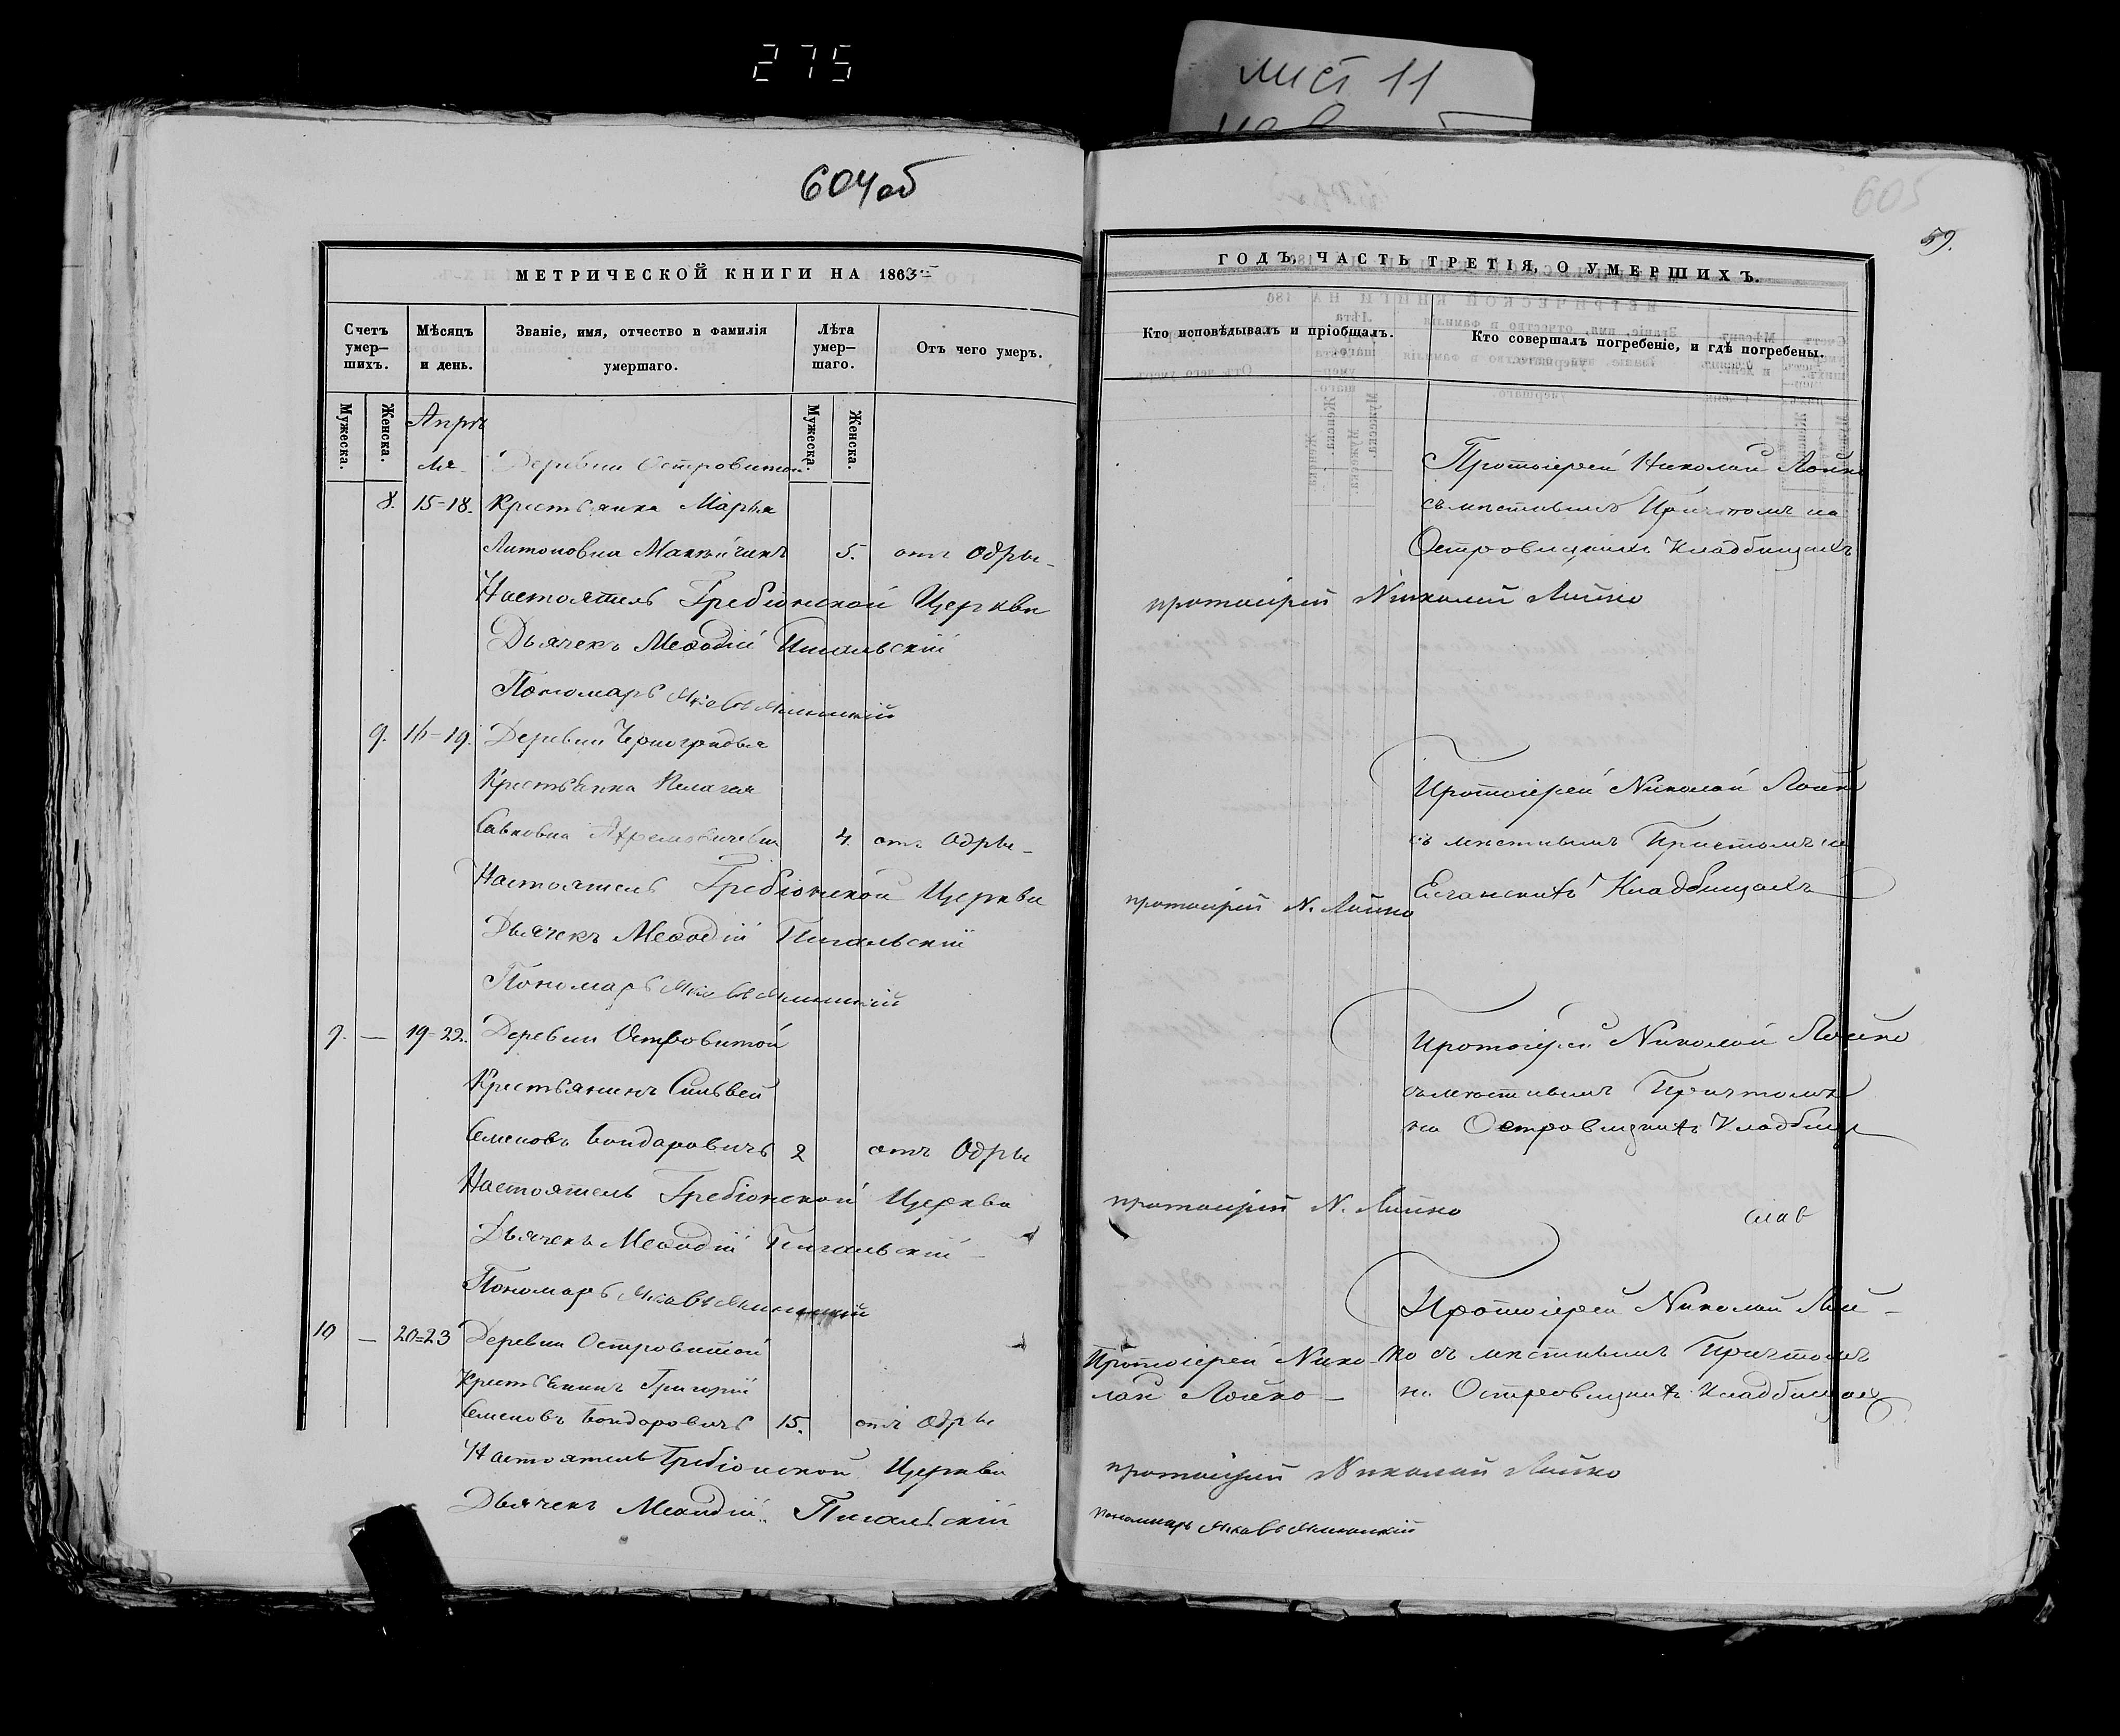 275
лист 11
604об
605
59.
МЕТРИЧЕСКОЙ КНИГИ НА 1863
Счетъ умер—шихъ.
Мѣсяцъ и день.
Званіе, имя, отчество и фамилія умершаго.
Лѣта умер—шаго.
Отъ чего умеръ.
Мужеска. Женска.
Мужеска. Женска.
Апрѣ
ля
Деревни Островитой
8. 15-18. Крестьянка Марья
Антоновна 5. отъ Одры
Настоятель Гребіонской Церкви
Дьячекъ Меѳодій Пигальскій
Пономарь
9. 16-19. Деревни Черногрядья
Крестьянка Пелагея
Савковна 4. отъ Одры
Настоятель Гребіонской Церкви
Дьячекъ Меѳодій Пигальскій
Пономарь
9. — 19-22. Деревни Островитой
Крестьянинъ Сильвей
Семеновъ Бондаровичъ 2 отъ Одры
Настоятель Гребіонской Церкви
Дьячекъ Меѳодій Пигальскій
Пономарь
10 — 20=23 Деревни Островитой
Крестьянинъ Григорій
Семеновъ Бондаровичъ 15. отъ Одры
Настоятель Гребіонской Церкви
Дьячекъ Меѳодій Пигальскій
ГОДЪ, ЧАСТЬ ТРЕТІЯ, О УМЕРШИХЪ.
Кто исповѣдывалъ и пріобщалъ.
Кто совершалъ погребеніе, и гдѣ погребены.
Протоіерей Николай Лойко
съ мѣстнымъ Причтомъ на
Островщинскихъ Кладбищахъ
протоіерей Николай Лойко
Протоіерей Николай Лойко
съ мѣстнымъ Причтомъ на
Кладбищахъ
протоіерей Н. Лойко
Протоіерей Николай Лойко
съ мѣстнымъ Причтомъ
на Кладбищ
протоіерей Н. Лойко
Протоіерей Николай Лой-
Протоіерей Нико-
ко съ мѣстнымъ Причтомъ
лай Лойко —
на Кладбищах
протоіерей Николай Лойко
пономарь